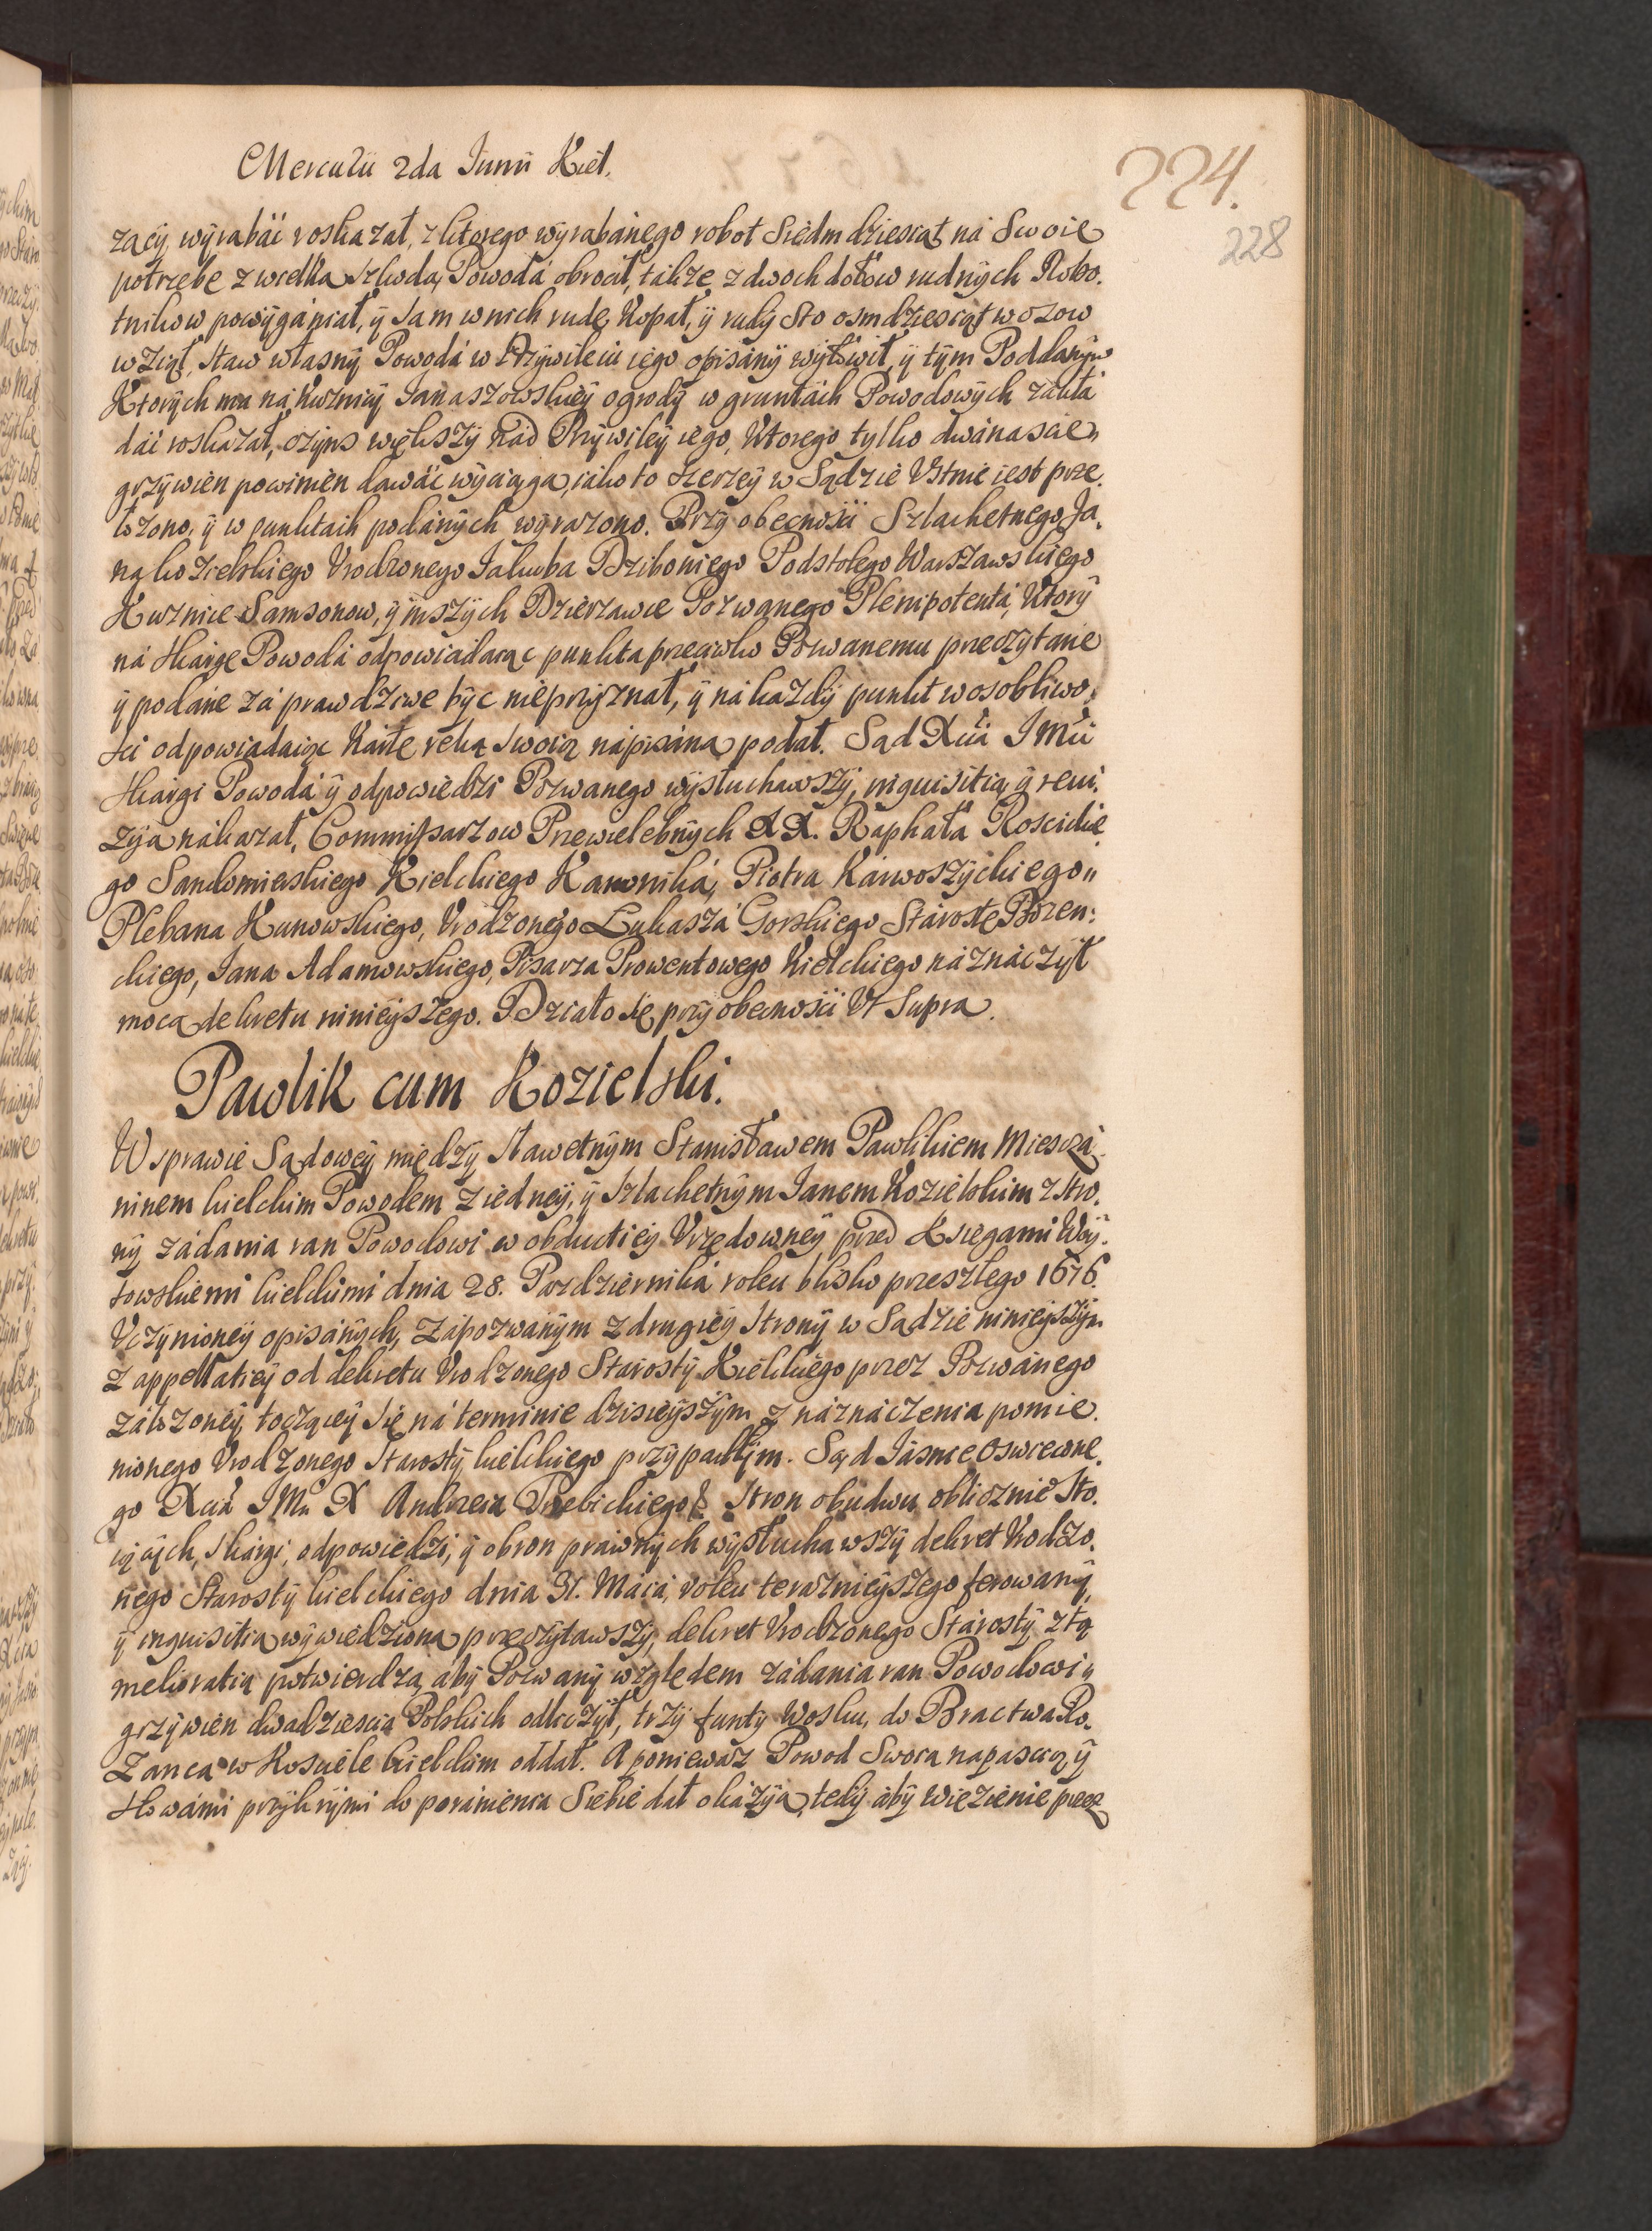 Mercurii 2da Junii Kiel.
224.
228
zącÿ wÿrabiać roskazał, z ktorego wÿrabánego robot siedmdziesiąt ná Swoię
potrzebę z wielką szkodą Powodá obrocił, także z dwoch dołow rudnÿch Robo.
tnikow powÿgániał, ÿ sam w nich rudę Kopał, ÿ rudÿ sto osmdziesiąt wozow
wziął, staw własnÿ Powodá w Przÿwileiu iego opisánÿ wÿłowił, ÿ tÿm Poddanÿm
Ktorÿch ma ná Kuznicÿ Janaszowskieÿ ogrodÿ w gruntách Powodowÿch zákłá
dáć roskazał, czÿnsz większÿ nád Przÿwileÿ iego, ktorego tylko dwánascie
grzÿwien powinien dawáć wÿciąga, iáko to szerzeÿ w Sądzie Vstnie iest prze.
łożono, ÿ w punktách podánÿch wÿrażono. Przÿ obecnosci Szlachetnego Ja.
ná Kozielskiego Vrodzonego Jakuba Dziboniego Podstolego Warszawskiego
Kuznice Samsonow, ÿ inszÿch Dzierzawce Pozwanego Plenipotentá, ktorÿ
ná skargę Powodá odpowiadaiąc punkta przeciwko Pozwanemu przeczÿtane
ÿ podáne zá prawdziwe bÿc nie przÿznał, ÿ ná kazdÿ punkt w osobliwo.
sci odpowiadaiąc Kartę ręką swoią nápisáną podał. Sąd Xcia JMci
skargi Powodá ÿ odpowiedzi Pozwanego wÿsłuchawszÿ, inquisitią ÿ rewi.
zÿą nákazał, Commissarzow Przewielebnÿch XX. Raphałá Roscickie
go Sandomierskiego Kielckiego Kanoniká, Piotra Karwoszÿckiego
Plebana Kunowskiego, Vrodzonego Łukaszá Gorskiego Stárostę Bozen:
ckiego, Jana Adamowskiego, Pisarza Prowentowego Kielckiego náznáczÿł
mocą dekretu ninieÿszego. Działo się przÿ obecnosci Vt Supra.
Pawlik cum Kozielski.
W sprawie Sądoweÿ międzÿ Sławetnÿm Stanisławem Pawlikiem Miesczá
ninem kielckim Powodem z iedneÿ, ÿ Szlachetnÿm Janem Kozielskim z stro.
nÿ zádania ran Powodowi w obductieÿ Vrzędowneÿ przed Xsięgami Woÿ.
towskiemi kielckimi dnia 28. Pazdzierniká roku blisko przeszłego 1676.
Vczÿnioneÿ opisánÿch, zápozwanÿm z drugieÿ stronÿ w Sądzie ninieÿszÿm
z appellatieÿ od dekretu Vrodzonego Starostÿ Kielckiego przez Pozwánego
záłożoneÿ, toczącÿ się ná terminie dzisieÿszÿm z náznáczenia pomie.
nionego Vrodzonego Starostÿ kielckiego przÿpadłÿm. Sąd Jásnie Oswiecone.
go Xcia JMci X Andrzeia Trzebickiego & stron obudwu oblicznie sto.
iącÿch, skargi, odpowiedzi, ÿ obron práwnÿch wÿsłuchawszÿ dekret Vrodzo.
nego Starostÿ kielckiego dnia 31. Máiá, roku terazniéÿszego ferowanÿ,
ÿ inquisitią wÿwiedzioną przeczÿtawszÿ, dekret Vrodzonego Stárostÿ z tą
melioratią potwierdza, ábÿ Pozwanÿ względem zádania ran Powodowi
grzÿwien dwadziescia Polskich odliczÿł, trzÿ funtÿ Wosku, do Bractwa Ro.
zanca w Kosciele kielckim oddał. A poniewáz Powod Swoią napascią ÿ
słowámi przÿkrÿmi do poránienia Siebie dał okázÿą, tedÿ ábÿ więzienie przez